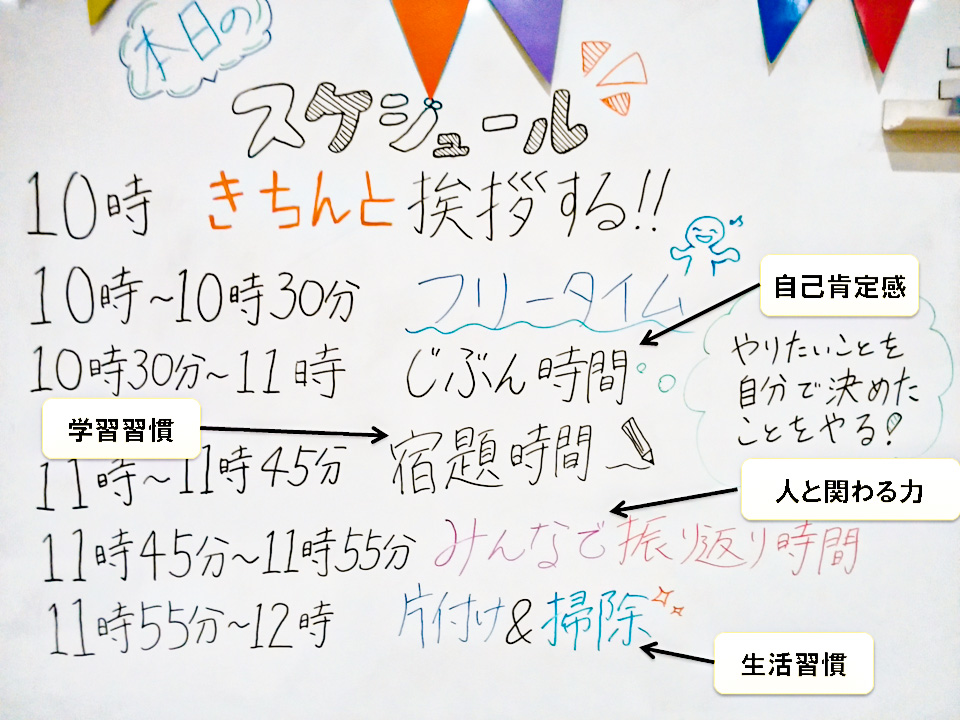 本日の
スケジュール
10時 きちんと挨拶する!!
10時~10時30分 フリータイム
自己肯定感
10時30分~11時 じぶん時間
やりたいことを
自分で決めた
ことをやる!
学習習慣
11時~11時45分 宿題時間
人と関わる力
11時45分~11時55分 みんなで振り返り時間
11時55分~12時 片付け&掃除
生活習慣